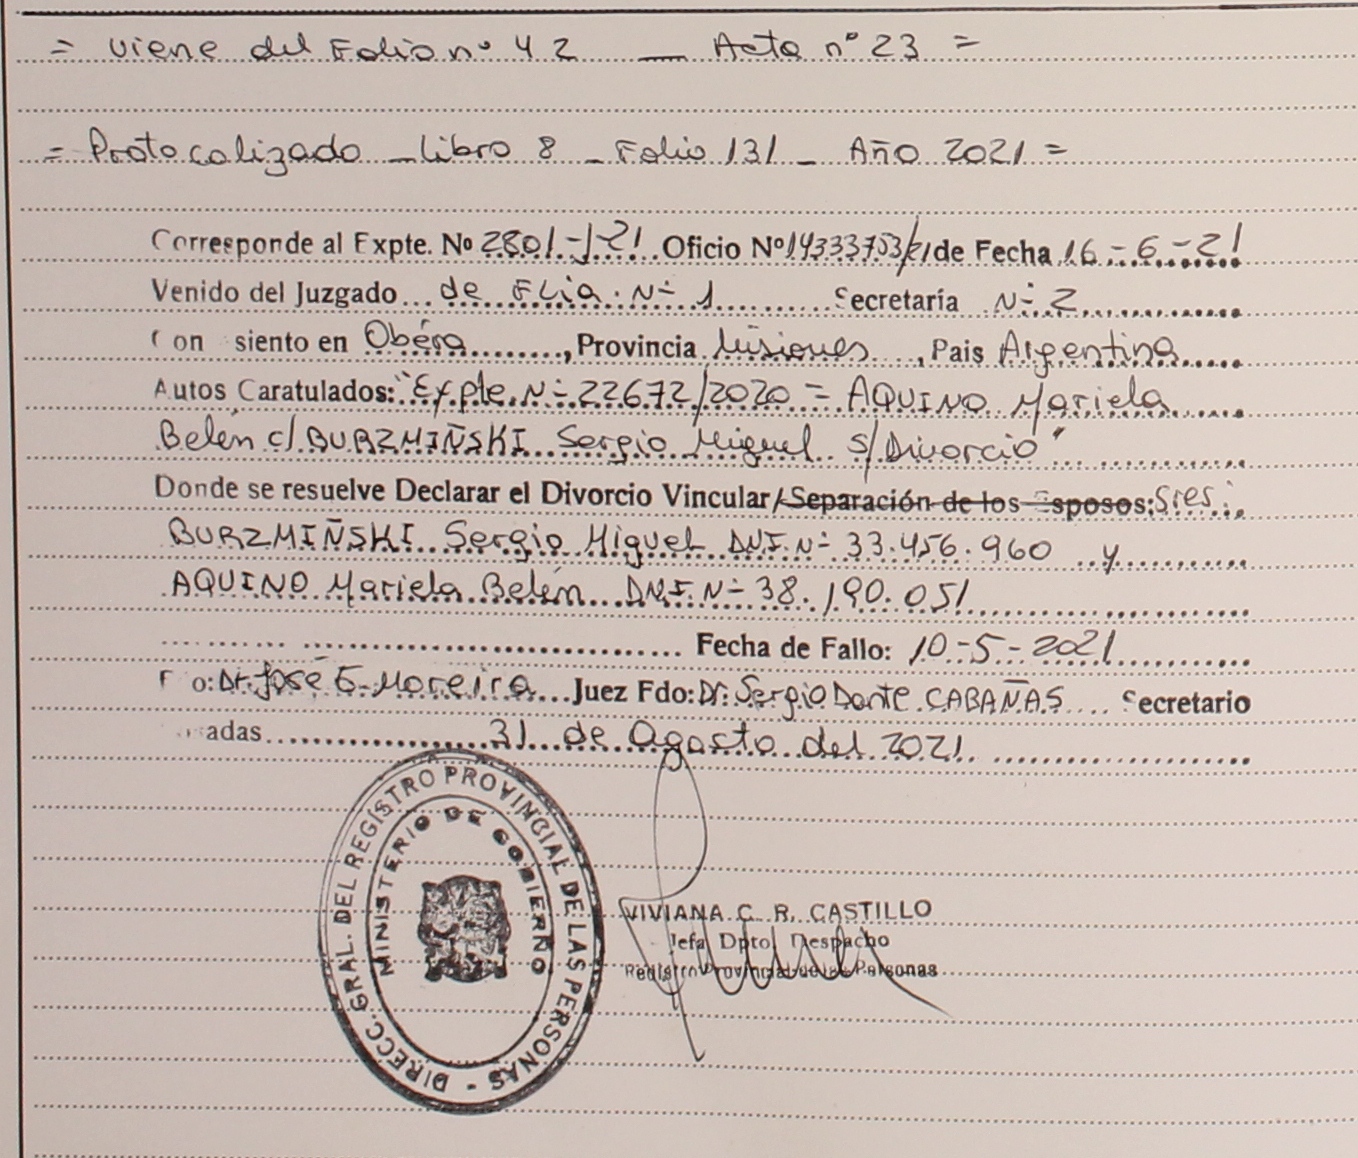 = viene del Folio nº 42 — Acta nº 23 =
= Protocalizado - Libro 8 - Folio 131 - Año 2021 =
Corresponde al Expte. Nº 2801-J-21. Oficio Nº 14333753/21 de Fecha 16-6-21
Venido del Juzgado de Flia. Nº 1 Secretaría Nº 2
Con siento en Oberá, Provincia Misiones, Pais Argentina
Autos Caratulados: "Expte. Nº 22672/2020 = AQUINO Mariela
Belén c/ BURZMIÑSKI Sergio Miguel s/ Divorcio"
Donde se resuelve Declarar el Divorcio Vincular/Separación de los Esposos: Sres:
BURZMIÑSKI Sergio Miguel DNI. Nº 33.456.960 y
AQUINO Mariela Belén DNI. Nº 38.190.051
Fecha de Fallo: 10-5-2021
F o: Dr. José E. Moreira Juez Fdo: Dr. Sergio Dante CABAÑAS Secretario
adas 31 de Agosto del 2021.
DIRECC. GRAL. DEL REGISTRO PROVINCIAL DE LAS PERSONAS -
MINISTERIO DE GOBIERNO
VIVIANA C. R. CASTILLO
Jefa Dpto. Despacho
Registro Provincial de las Personas